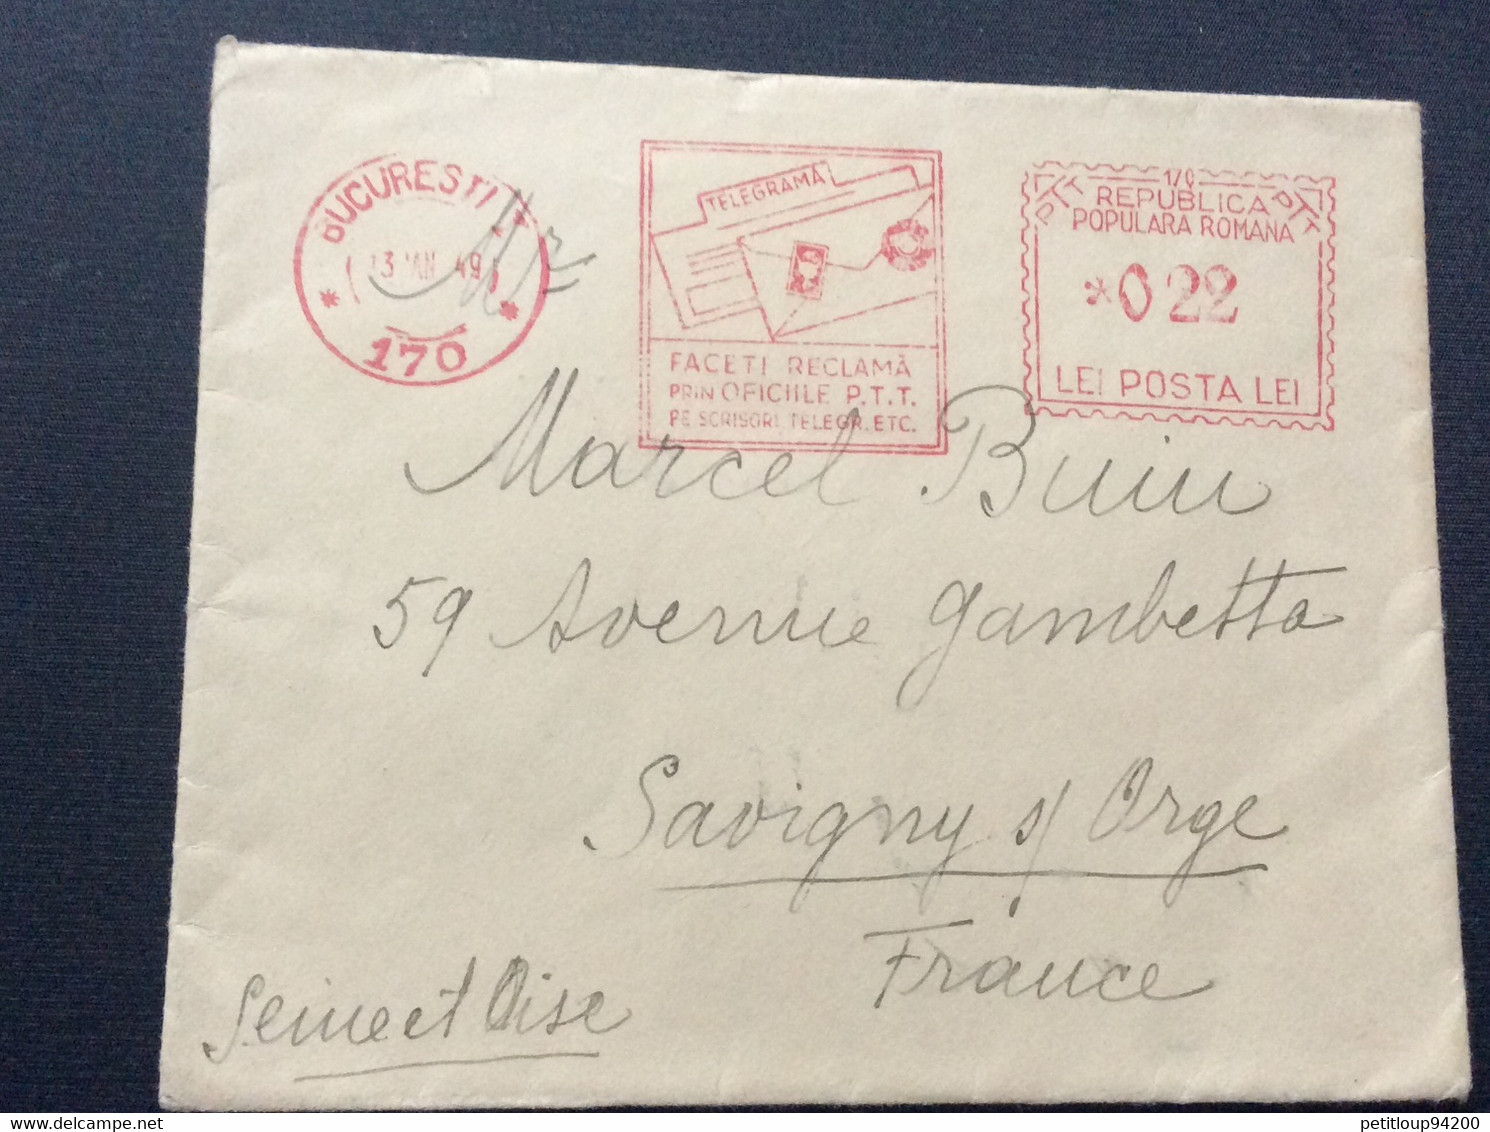 BUCURESTI
13 IAN 49
170
TELEGRAMĂ
FACETI RECLAMĂ
PRIN OFICIILE P.T.T.
PE SCRISORI TELEGR. ETC.
170
PTT PTT
REPUBLICA
POPULARA ROMANA
*0 22
LEI POSTA LEI
Mr
Marcel
59 Avenue Gambetta
Savigny s/ Orge
France
Seine et Oise
petitloup94200